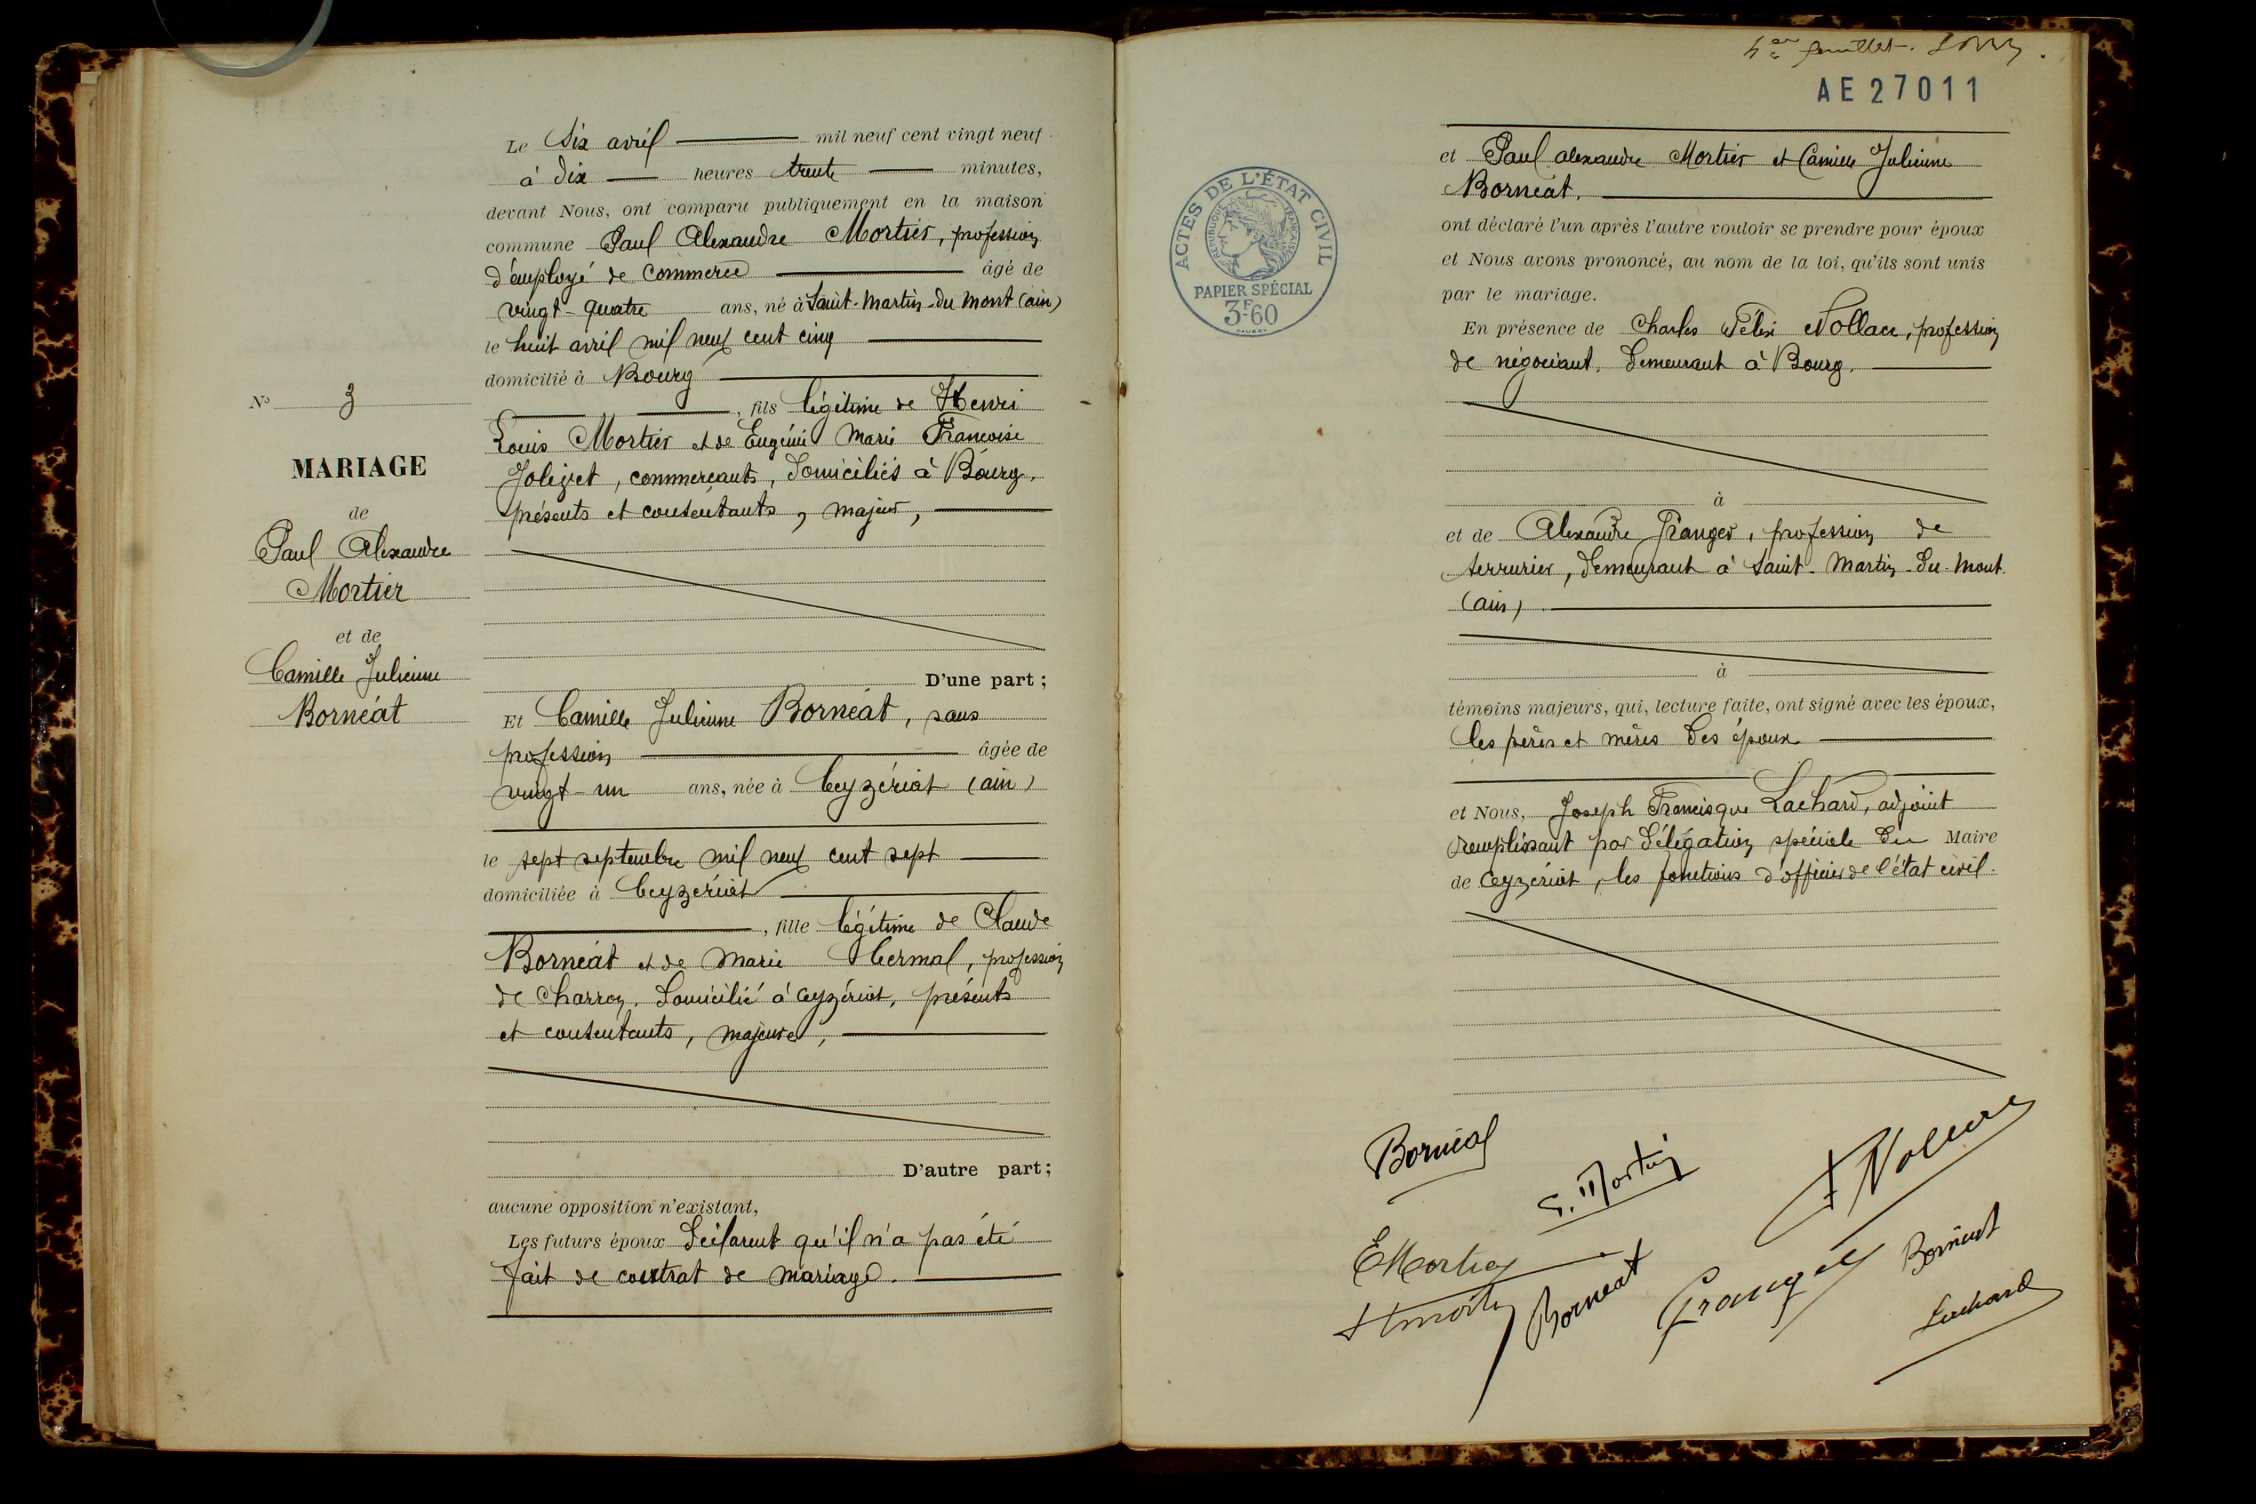 Le six avril mil neuf cent vingt neuf
à dix heures trente minutes,
devant Nous, ont comparu publiquement en la maison
commune Paul Alexandre Mortier, profession
d'employé de commerce âgé de
vingt-quatre ans, né à Saint-Martin-du Mont (ain)
le huit avril mil neuf cent cinq
domicilié à Bourg
, fils légitime de Henri
Louis Mortier et de Eugénie Marie Francoise
, commerçants, domiciliés à Bourg,
présents et consentants, majeur,
D'une part ;
No 3
MARIAGE
de
Paul Alexandre
Mortier
et de
Camille Julienne
Bornéat
Et Camille Julienne Bornéat, sans
profession âgée de
vingt-un ans, née à Ceyzériat (ain)
le sept septembre mil neuf cent sept
domiciliée à Ceyzériat
, fille légitime de Claude
Bornéat et de Marie Cermal, profession
de charron, domicilié à Ceyzériat, présents
et consentants, majeure,
D'autre part ;
aucune opposition n'existant,
Les futurs époux déclarent qu'il n'a pas été
fait de contrat de mariage.
feuillet.
AE27011
ACTES DE L'ÉTAT CIVIL
REPUBLIQUE FRANCAISE
PAPIER SPÉCIAL
3F60
et Paul alexandre Mortier et Camille Julienne
Bornéat.
ont déclaré l'un après l'autre vouloir se prendre pour époux
et Nous avons prononcé, au nom de la loi, qu'ils sont unis
par le mariage.
En présence de Charles Félix Nollace, profession
de négociant, demeurant à Bourg.
à
et de Alexandre Granger, profession de
serrurier, demeurant à Saint-Martin-du-Mont
(ain)
à
témoins majeurs, qui, lecture faite, ont signé avec les époux,
les pères et mères des époux
et Nous, Joseph Francisque Lachard, adjoint
remplissant par délégation spéciale du Maire
de Ceyzériat, les fonctions d'officier de l'état civil.
Bornéat
Mortier
EMortier
Bornéat
Granger
Bornéat
Lachard